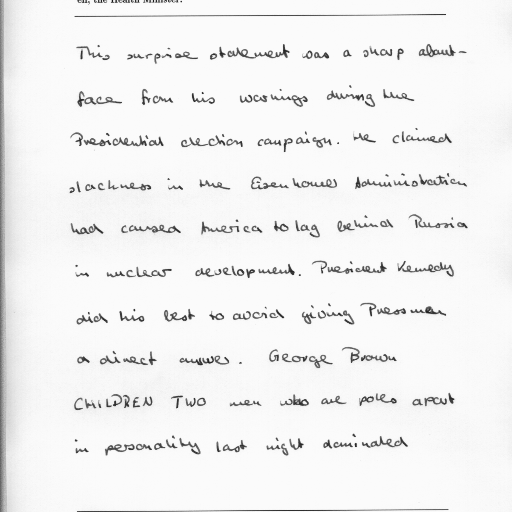 en, the Health Minister.
This surprise statement was a sharp about-
face from his warnings during the
Presidential election campaign. He claimed
slackness in the Eisenhower Administration
had caused America to lag behind Russia
in nuclear development. President Kennedy
did his best to avoid giving Pressmen
a direct answer. George Brown
CHILDREN TWO men who are poles apart
in personality last night dominated